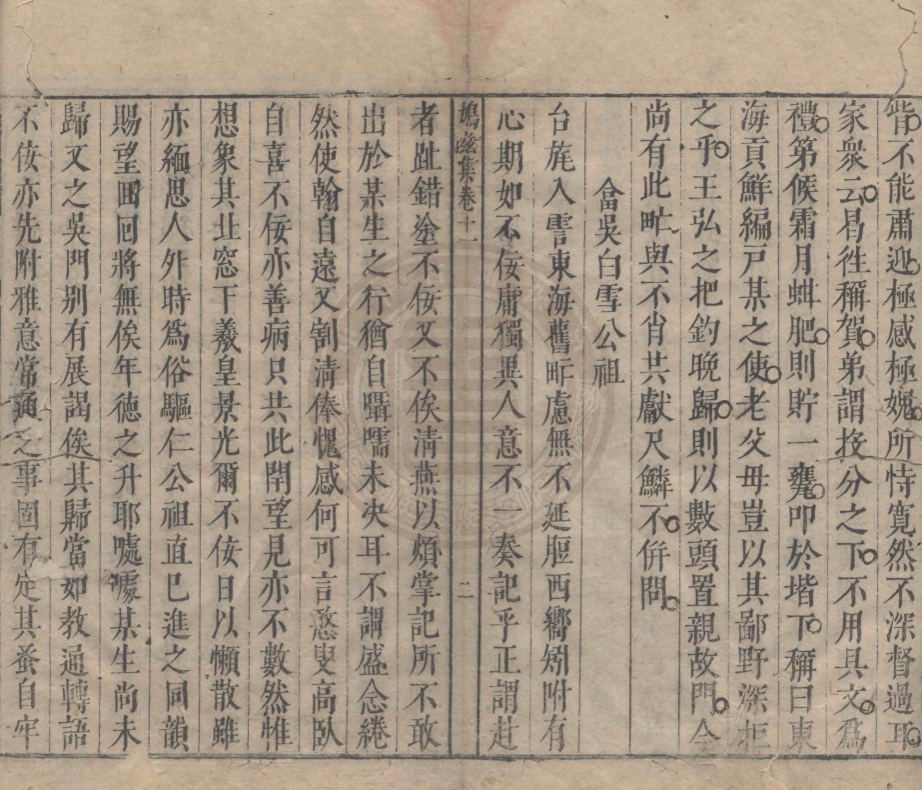 呰不能肅迎極感極媿所恃寛然不深督過耳
家衆云曷徃稱賀弟謂投分之下不用具文爲
禮第候霜月蚶肥則貯一甕叩於堦下稱曰東
海貢鮮編戸某之使老父母豈以其鄙野深拒
之乎王弘之把釣晚歸則以數頭置親故門今
尚有此甿與不肖共獻尺鱗不倂問
畣吳白雪公祖
台旄入霅東海舊甿慮無不延脰西嚮矧附有
心期如不佞庸獨異人意不一奏記乎正謂赴
鳩茲集卷十一 二
者趾錯塗不佞又不俟清燕以煩掌記所不敢
出於某生之行猶自囁嚅未決耳不謂盛念綣
然使翰自遠又割清俸愧感何可言憨叟高臥
自喜不佞亦善病只共此閉望見亦不數然惟
想象其北窓下羲皇景光爾不佞日以懶散雖
亦緬思人外時爲俗驅仁公祖直已進之同韻
賜望囬囘將無俟年德之升耶噓㯫某生尚未
歸又之吳門别有展謁俟其歸當如教通轉語
不佞亦先附雅意常通之事固有定其蚤自牢